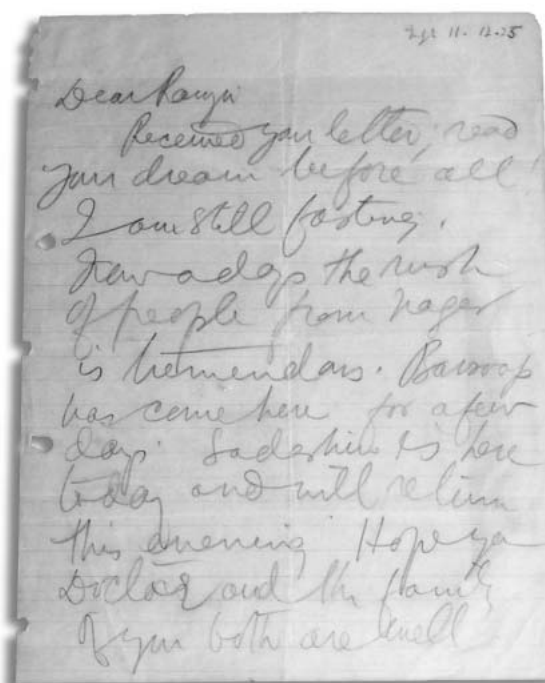 11-12-25
Dear Ramjoo
Received your letter; read
your dream before all!
I am still fasting.
Nowadays the rush
of people from Nagar
is tremendous.
has come here for a few
days. Sadashiv is here
today and will return
this evening Hope you
Doctor and the family
of you both are well